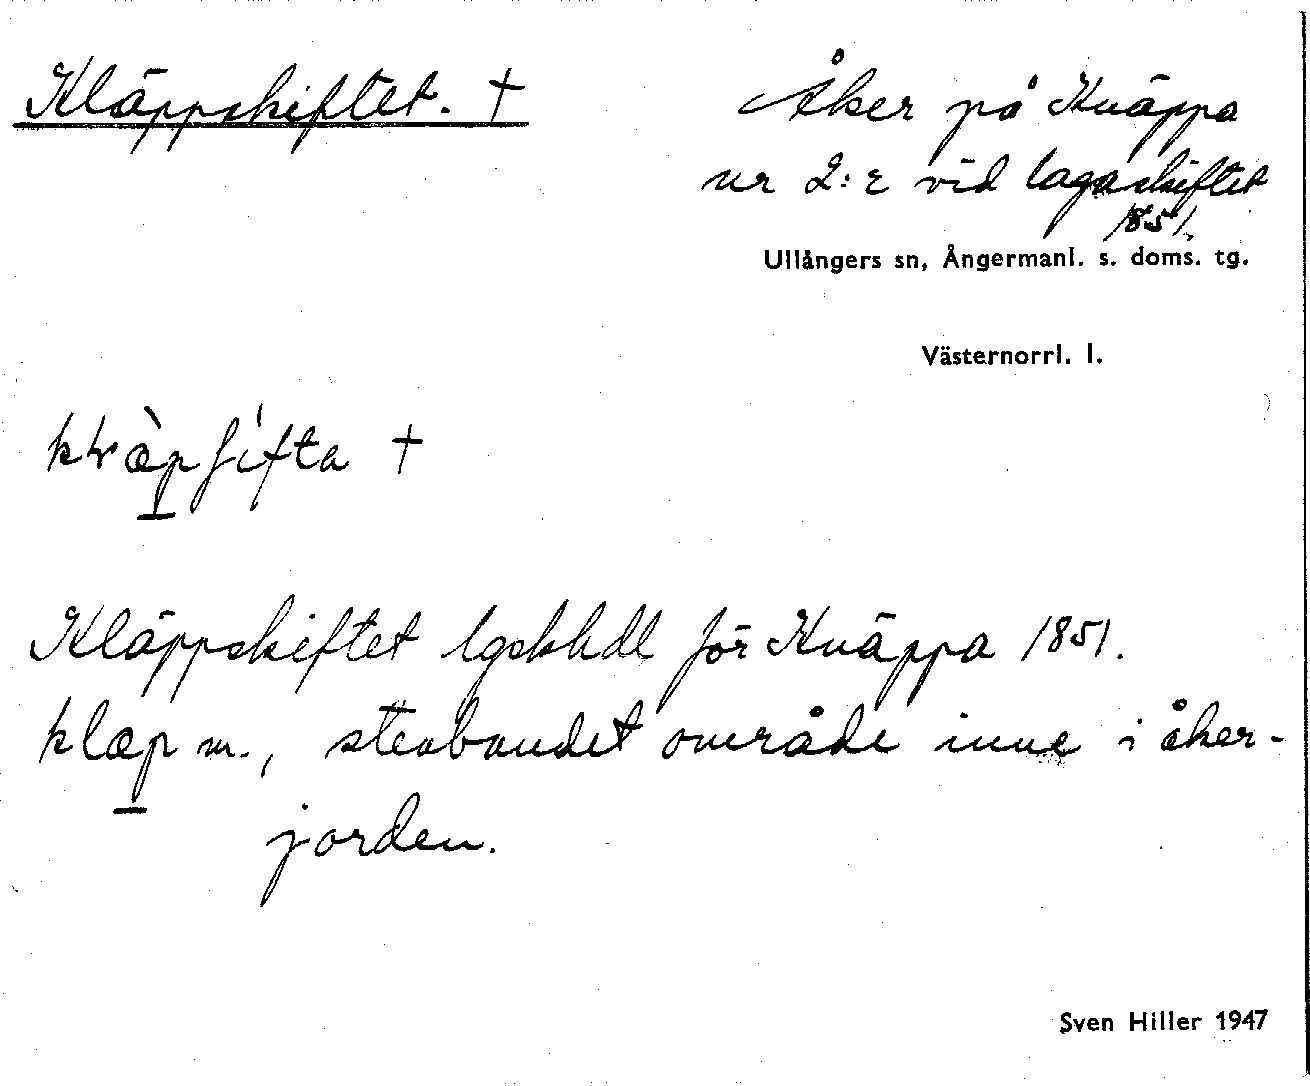 Kläppskiftet. †
Åker på Knäppa
nr 2: ε vid lagaskiftet
1851.
Ullångers sn, Ångermanl. s. doms. tg.
Västernorrl. l.
Kläppskiftet lgskhdl för Knäppa 1851.
klæp m., stenbundet område inne i åker-
jorden.
Sven Hiller 1947